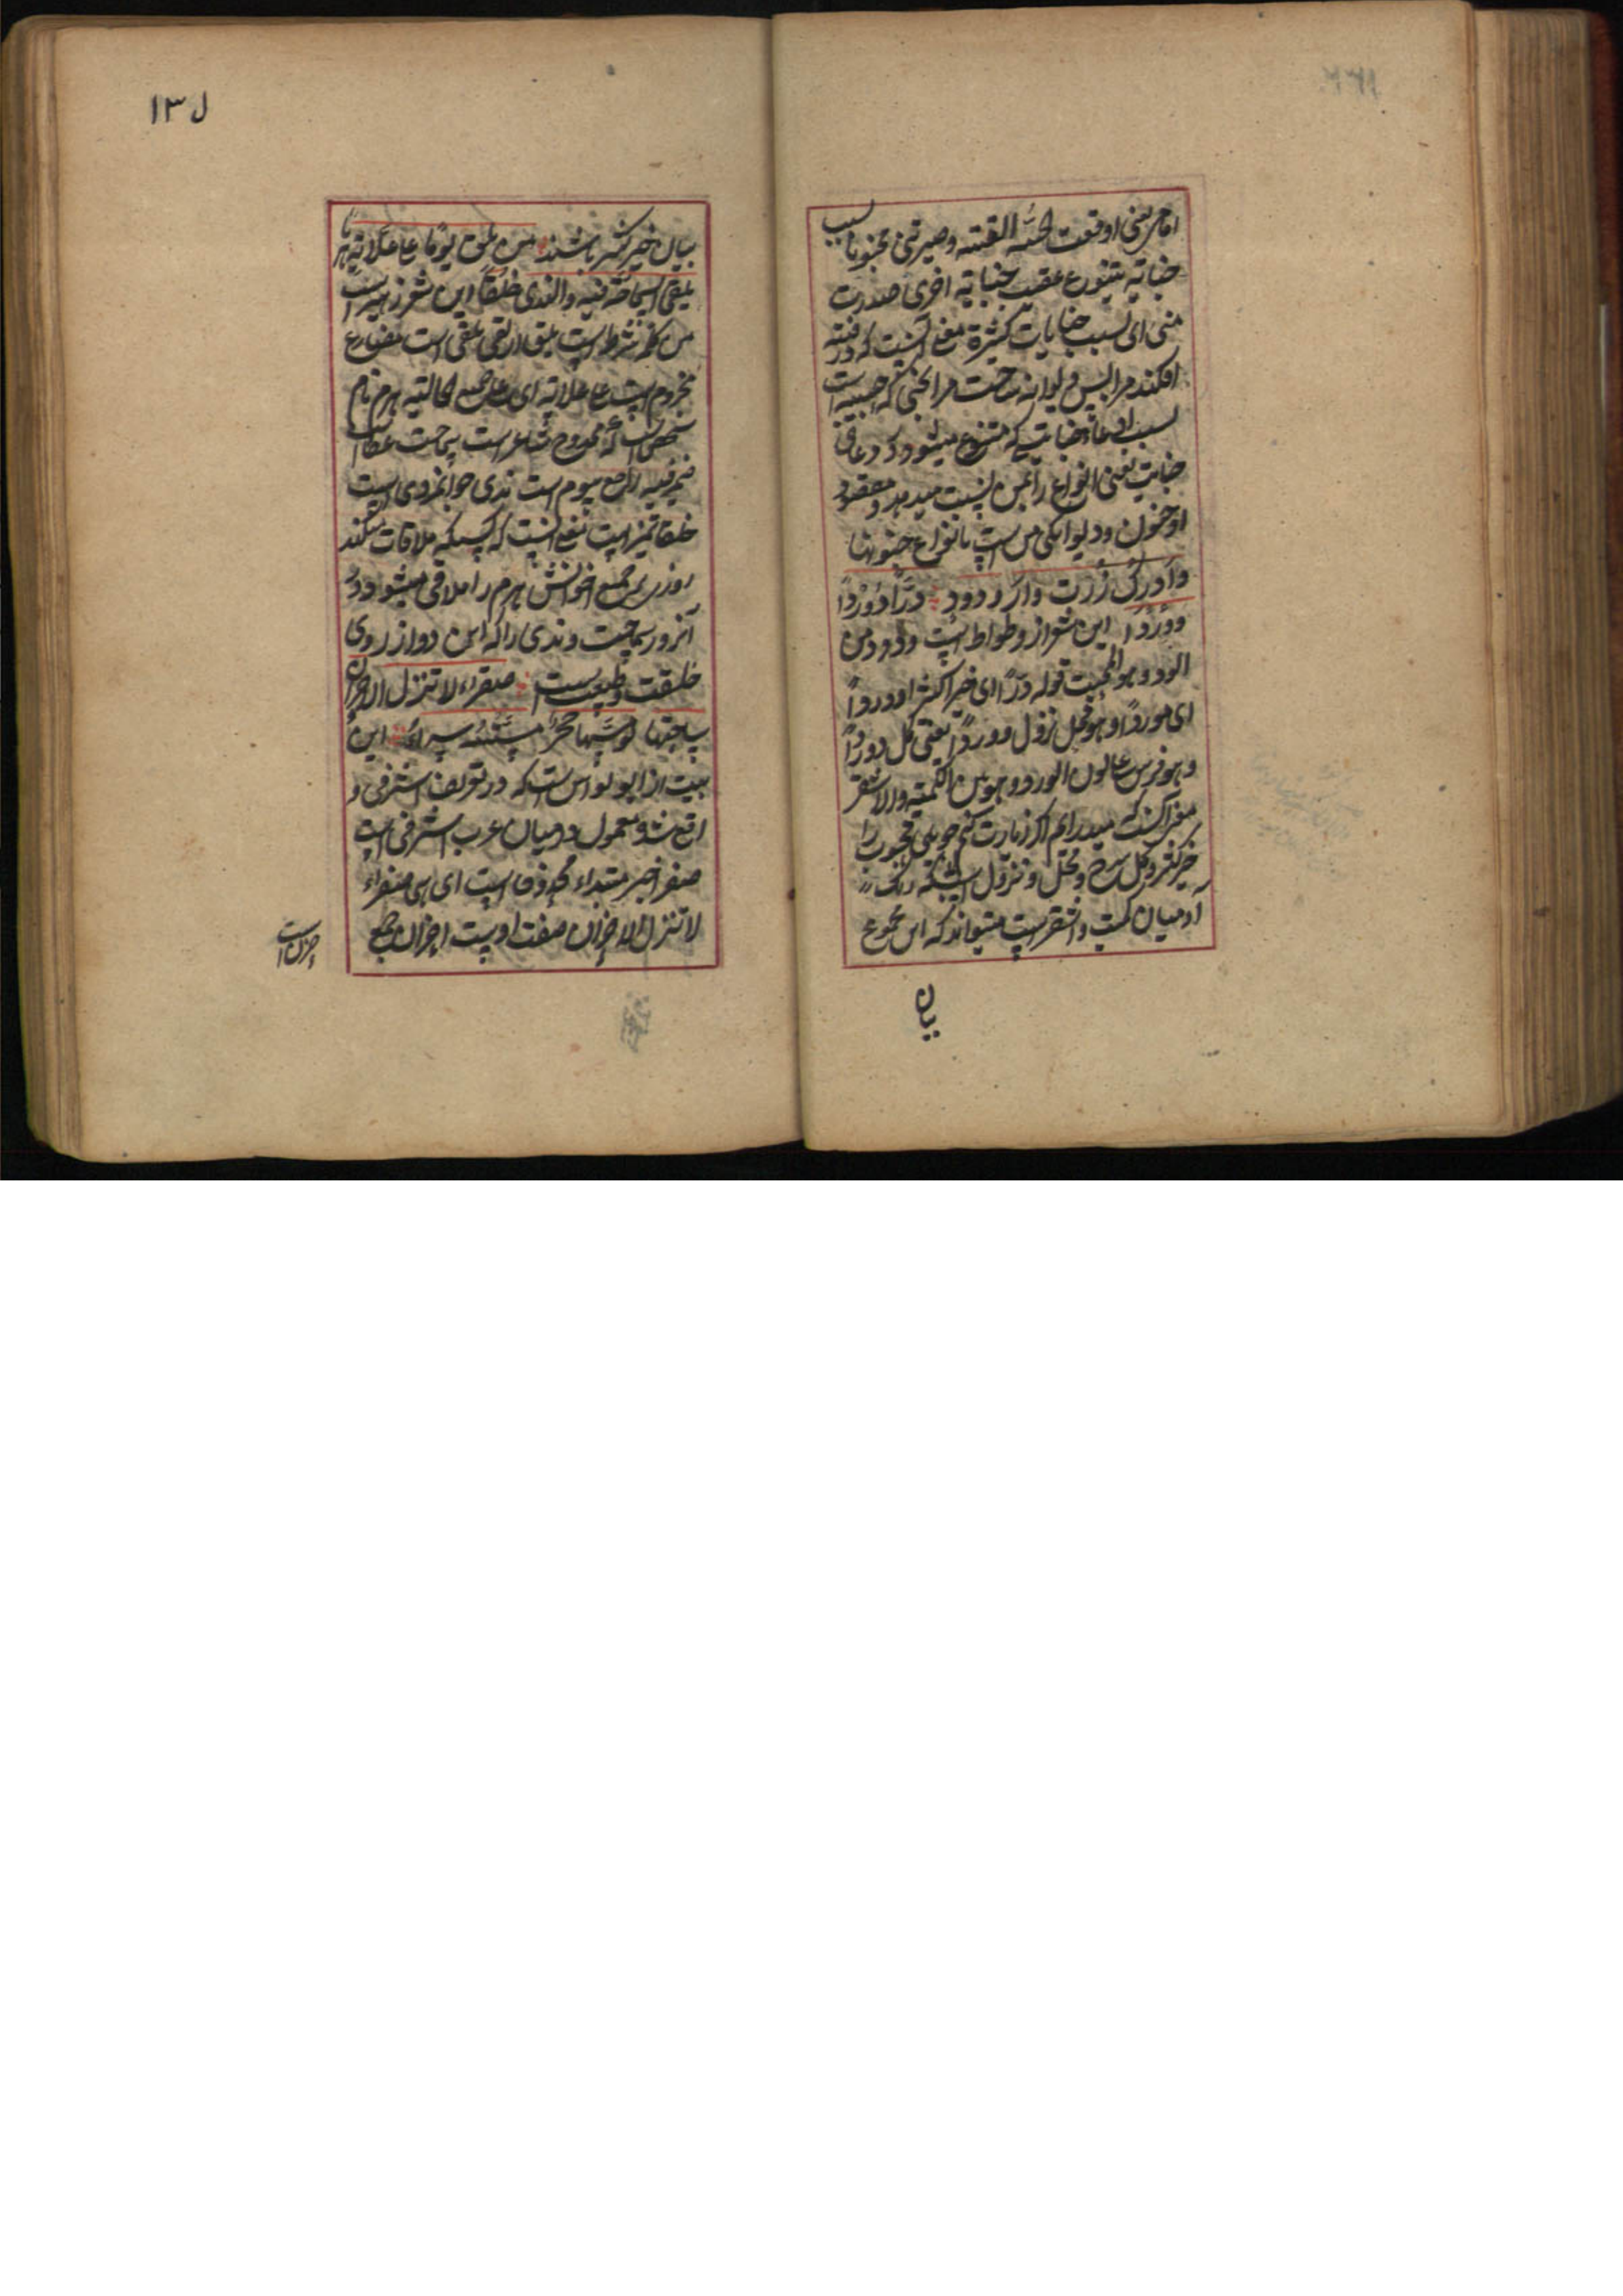 اما من یعنی اوقعت الحیه الفتنه و صیرتنی مجنونا بسبب
جنایة یتنوع عقیب جنایة اخری صدرت
منی ای بسبب جنایات کثیرة معنی آنست که در فتنه
افکند مرا پس دیوانه ساخت مرا
بسبب ادعاء جنایتی که متنوع میشود
جنایت یعنی انواع را بمن نسبت میدهد و مقصود
او جنون و دیوانگی من است بانواع جنونها
وادرک زرت دار ودود درا و وردا
ووردا این شعر از وطواط است ودود من
الود و هو المحبت قوله درا ای خیرا کثیرا و وردا
ای موردا و هو محل نزول و وردا یعنی گل و وردا
و هو فرس علی لون الورد و هو بین الکمیته والاشقر
معنی آنست که میدرایم اگر زیارت کنم حویلی محبوب را
خیر کثیر و گل سرخ و محل و نزول اسپیکه رنگ
آن میان کمیت و اشقر است میتواند که این مجموع
بیان
۱۳۷
بیان خیر کثیر باشند من یلق یوما علی علاته هرما
یلقی السماحة فیه والندی خلقا این شعر زهیر است
من کلمه شرط است یلق از لقی یلقی است مضارع
مجزوم است علی علاته ای علی جمیع حالاته هرم نام
شخص است که ممدوح شاعر است سماحت عطا است
ضمیر فیه راجع بیوم است ندی جوانمردی است
خلقا تمیز است معنی آنست که کسیکه ملاقات میکند
روزی بر جمیع احوالش هرم را ملاقی میشود در
آنروز سماحت و ندی را که این دو از روی
خلقت و طبیعت است صفراء لا تنزل الاحزان
ساحتها لو مسها حجر مسته سراء این
بیت از ابو نواس است که در تعریف اشرفی و
اقع شد و معمول در میان عرب اشرفی است
صفرا خبر مبتداء محذوف است ای هی صفراء
لا تنزل الاحزان صفت اوست احزان جمع
حزن است